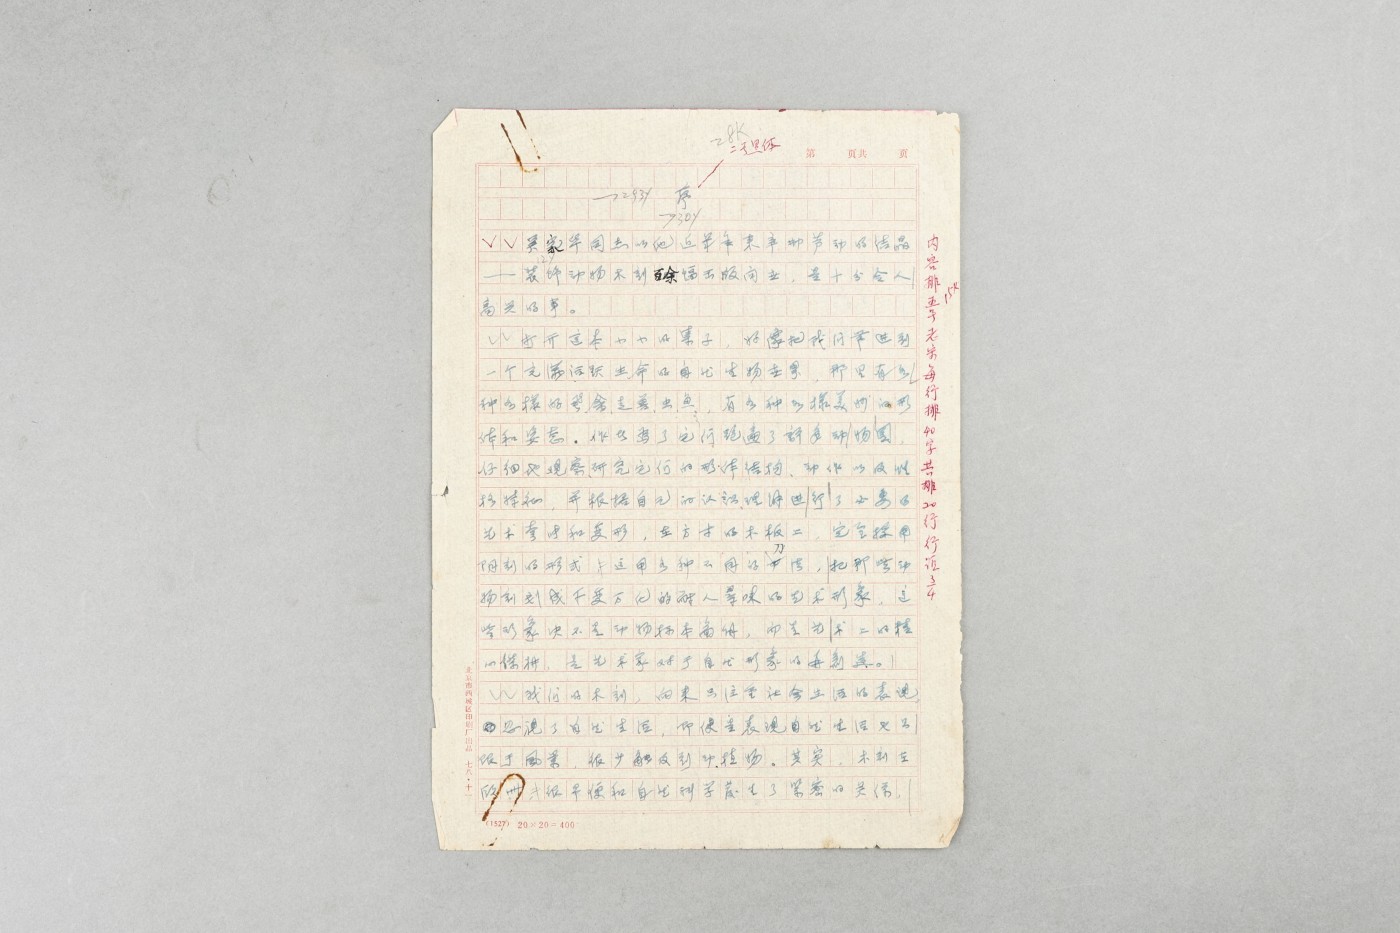 28K
二号黑体
第 页共 页
序
吴家华同志以他近半年来辛勤劳动的结晶
——装饰动物木刻百余幅出版问世，是十分令人
高兴的事。
打开这本小小的集子，好像把我们带进到
一个充满活跃生命的自然生物世界，那里有各
种各样的琴禽走兽虫鱼，有各种各样美妙的形
体和姿态。作者为了它们跑遍了许多动物园，
仔细地观察研究它们的形体结构、动作以及性
格特征，并根据自己的认识理解进行了必要的
艺术夸张和变形，在方寸的木板上，完全採用
阴刻的形式，运用各种不同的刀法，把那些动
物刻划成千变万化的耐人寻味的艺术形象，这
些形象决不是动物标本图解，而是艺术上的精
心保持，是艺术家对于自然形象的再创造。
我们的木刻，向来只注重社会生活的表现，
忽视了自然生活，即使是表现自然生活也只
限于风景，很少触及到动植物。其实，木刻在
欧洲，很早便和自然科学发生了紧密的关係，
内容排五号老宋每行排40字共排20行行距3/4
15K
北京市西城区印刷厂出品 七八·十一
(1527) 20×20=400